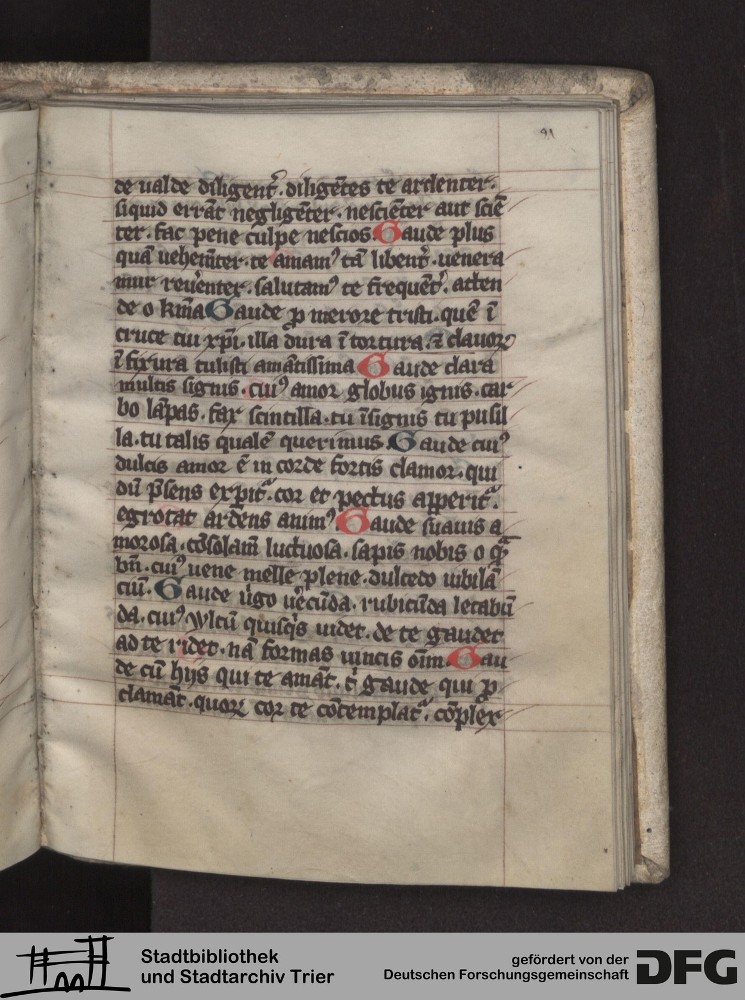 91
de ualde diligent᷑. diligētes te ardenter.
siquid errāt negligēter. nesciēter aut sciē
ter. fac pene culpe nescios. Gaude plus
quā uehem̄ter. te amam᷒ tā libent᷑. uenera
mur reu᷑enter. salutam᷒ te frequēt᷑. atten
de o kr̄ia Gaude ꝑ merore tristi. quē ī
cruce tui xp̄i. illa dura ī tortura. ⁊ clauoꝝ
ī fixura tulisti amātissima Gaude clara
multis signis. cui᷒ amor globus ignis. car
bo lāpas. fax scintilla. tu īsignis tu pusil
la. tu talis qualē querimus. Gaude cui᷒
dulcis amor ē in corde fortis clamor. qui
dū p̄sens exp̲it᷑. cor et pectus app̲erit᷑.
egrotat ardens anim᷒. Gaude suauis a
morosa. cōsolam̄ luctuosa. sapis nobis o qͣ
bn̄. cui᷒ uene melle plene. dulcedo iubilā
ciū. Gaude u᷑go u᷑ecūda. rubicūda letabū
da. cui᷒ wltū quisq̄s uidet. de te gaudet
ad te ridet. nā formas uincis oīm. Gau
de cū hijs qui te amāt. gaude qui ꝓ
clamāt. quoꝝ cor te cōtemplat᷑. cōplex
Stadtbibliothek
und Stadtarchiv Trier
gefördert von der
Deutschen Forschungsgemeinschaft
DFG